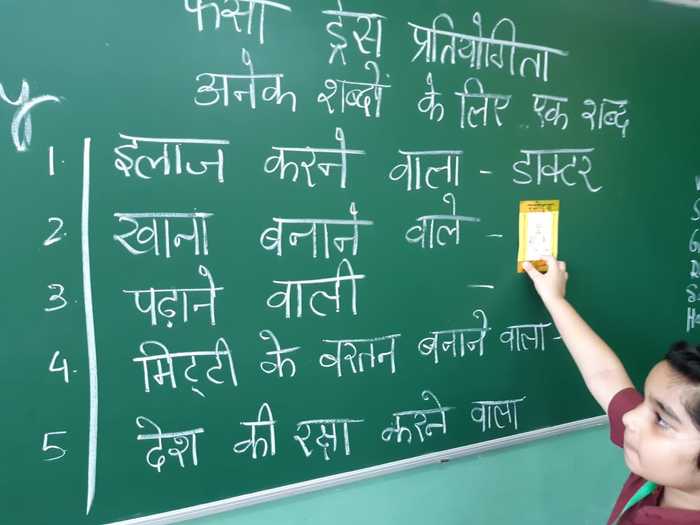 फैंसी ड्रेस प्रतियोगिता
अनेक शब्दों के लिए एक शब्द
1. इलाज करने वाला - डाक्टर
2. खाना बनाने वाले -
3. पढ़ाने वाली -
4. मिट्टी के बरतन बनाने वाला -
5 देश की रक्षा करने वाला